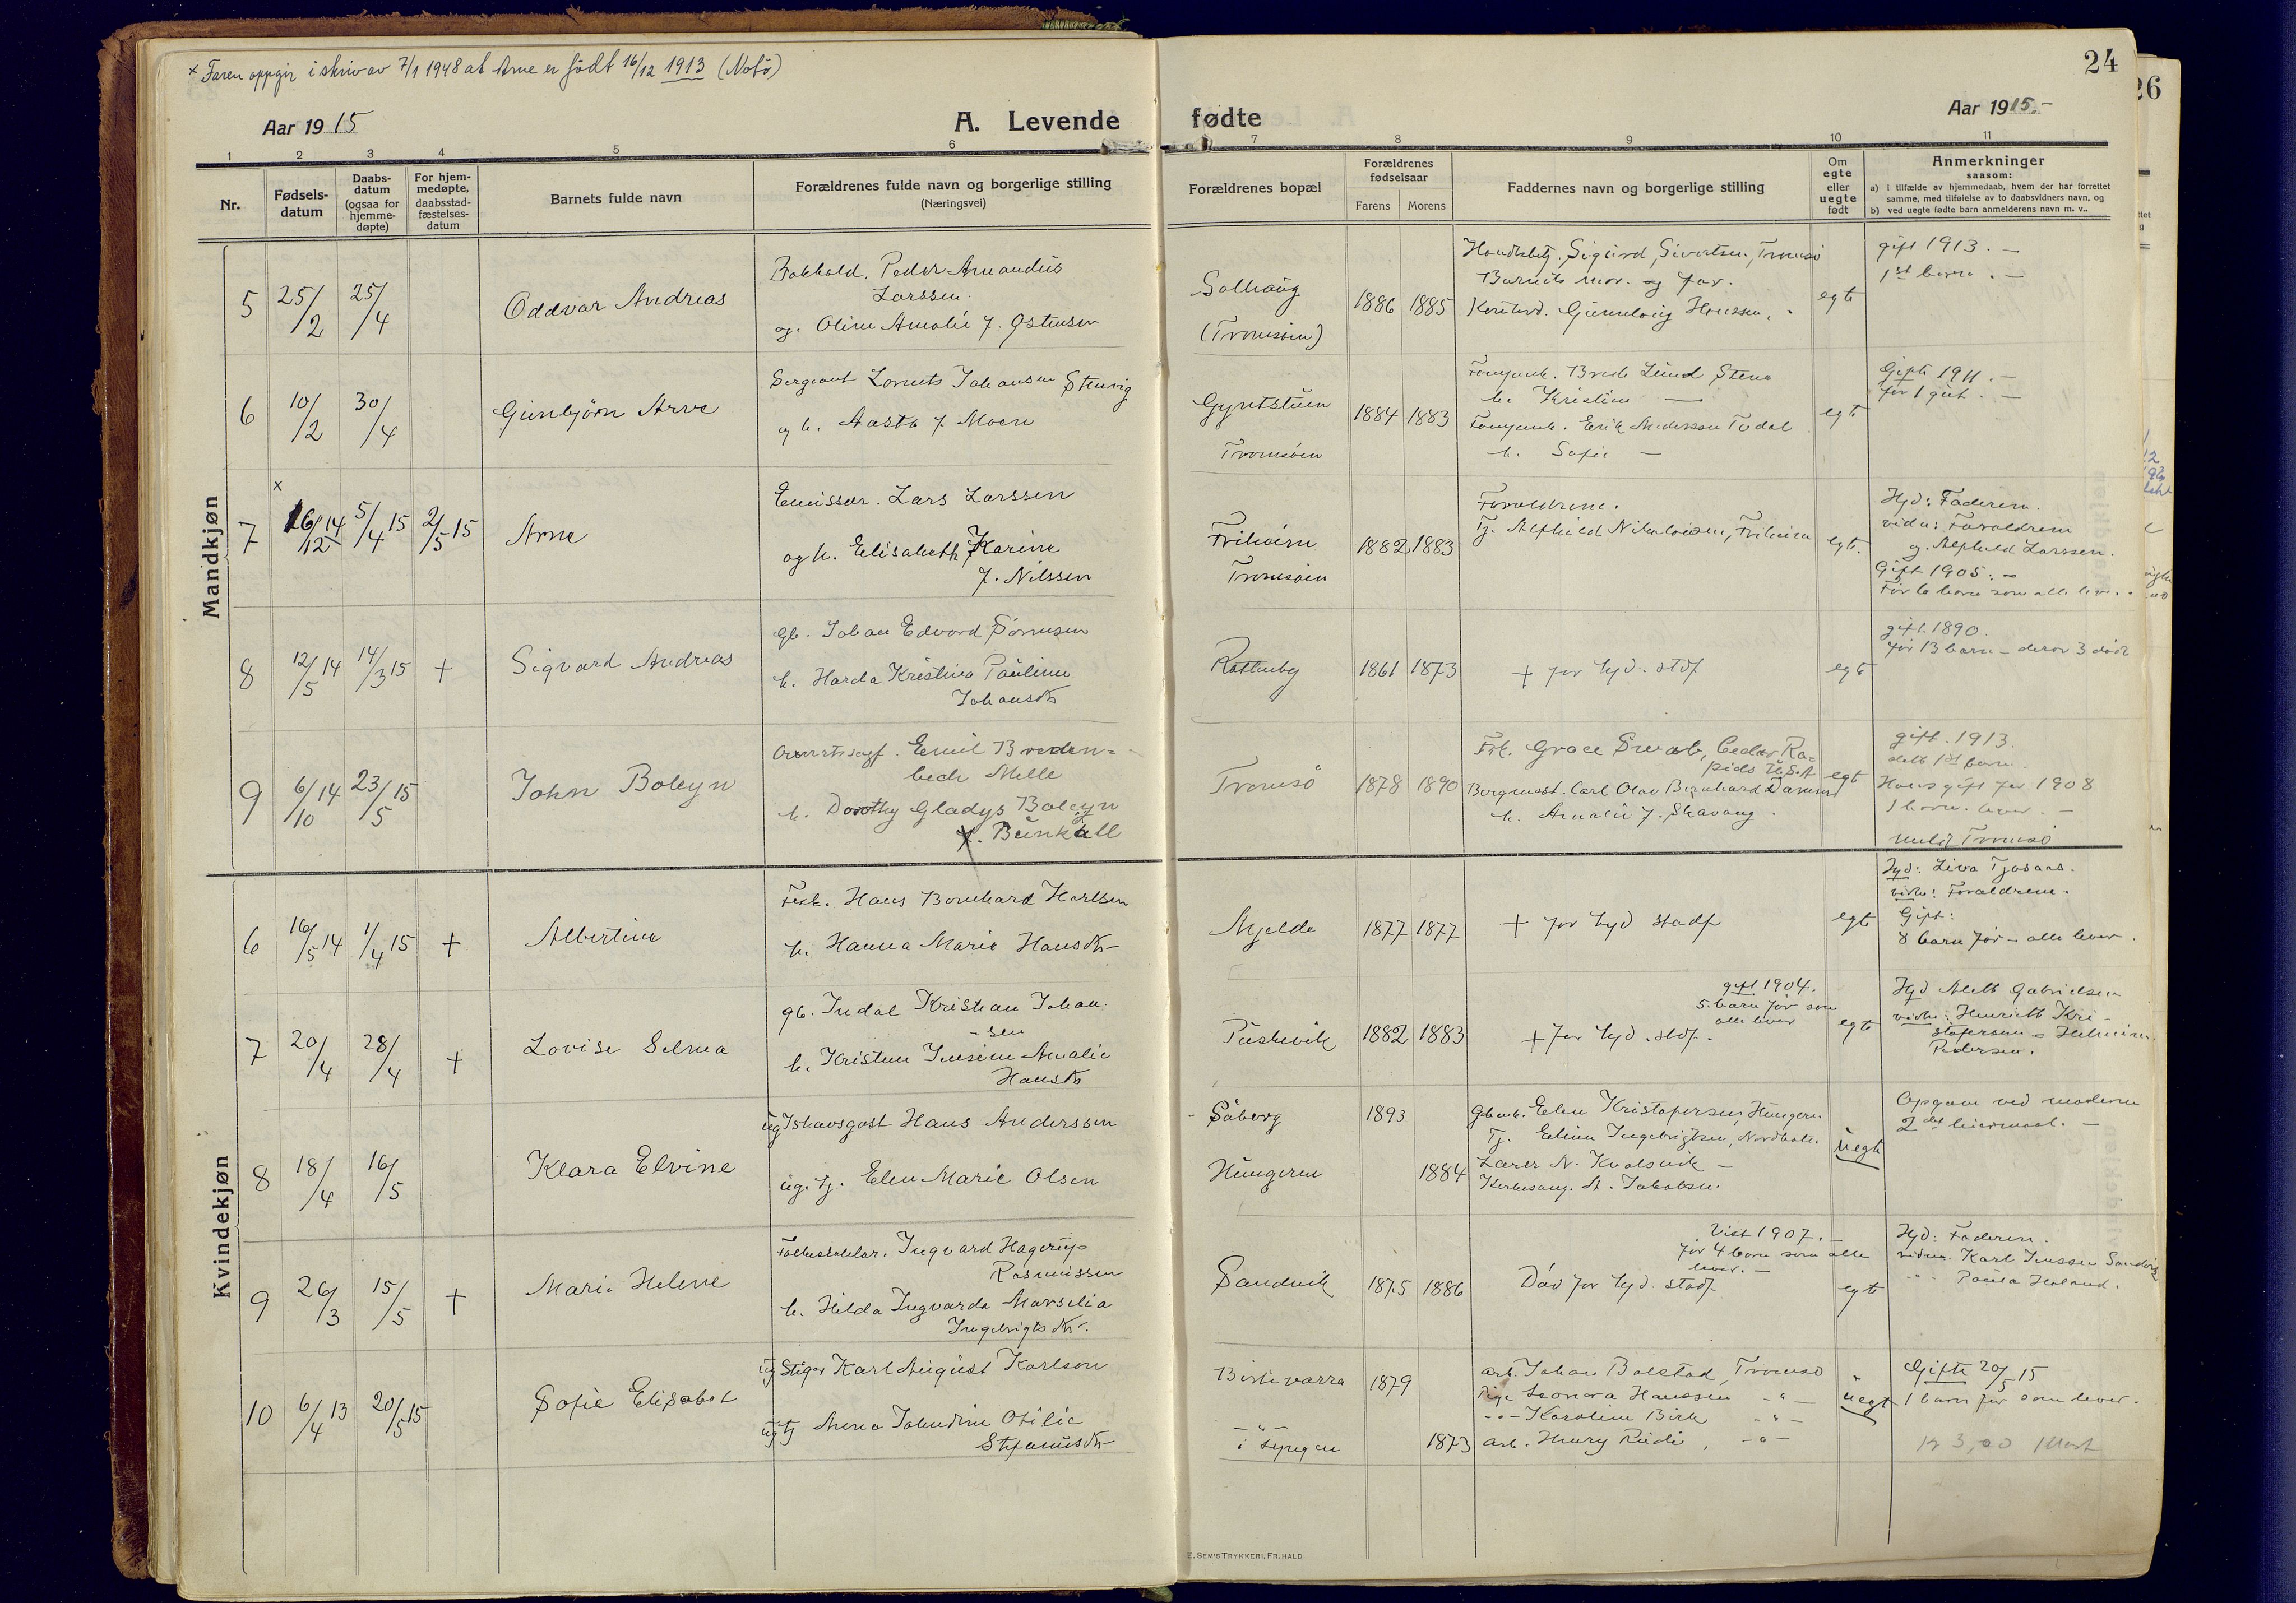 × Faren oppgir i skriv av 7/1 1948 at Arne er født 16/12 1913 (Notø)
24
26
Aar 1915
A. Levende fødte
Aar 1915.-
1 2 3 4 5 6 7 8 9 10 11
Nr.
Fødsels-
datum
Daabs-
datum
(ogsaa for
hjemme-
døpte)
For hjem-
medøpte,
daabsstad-
fæstelses-
datum
Barnets fulde navn
Forældrenes fulde navn og borgerlige stilling
(Næringsvei)
Forældrenes bopæl
Forældrenes
fødselsaar
Farens Morens
Faddernes navn og borgerlige stilling
Om
egte
eller
uegte
født
Anmerkninger
saasom:
a) i tilfælde av hjemmedaab, hvem der har forrettet
samme, med tilføielse av to daabsvidners navn, og
b) ved uegte fødte barn anmelderens navn m. v..
Mandkjøn
5 25/2 25/4 Oddvar Andreas
Peder Amandus
Larssen.
og. Oline Amalie f. Østensen
Solhaug
(Tromsøen)
1886 1885
Sigurd Sivertsen, Tromsø
Barnets mor. og far.
Gunnlaug Hanssen.
egte
gift 1913. -
1st barn. -
6 10/2 30/4 Gunbjørn Arve
Sergeant Lorents Johansen Stenvig
og h. Aasta f Moen
Gyntstuen
Tromsøen
1884 1883
Lund Steno
h. Kristine -
Erik Andersen Tudal
h. Sofie -
egte
Gifte 1911. -
før 1 gut. -
×
7 16/12 14 5/4 15 2/5 15 Arne
Emissær. Lars Larssen
og h. Elisabeth Karine
f. Nilssen
Friheim
Tromsøen
1882 1883
Forældrene.
Tj. Alfhild Nikolaisen, Friheim
egte.
Hjd: Faderen.
vidn: Forældrene
og. Alfhild Larssen.
Gift 1905: -
Før 6 barn som alle lever.
8 12/5 14 14/3 15 + Sigvard Andreas
Gb. Johan Edvard Sørensen
h. Harda Kristina Pauline
Johansdtr
1861 1873
+ før hjd. stdf
egte
gift. 1890.
før 13 barn - derav 3 død
9 6/10 14 23/5 15 John Boleyn
Emil Breden-
bech Melle
h. Dorothy Gladys Boleyn
f. Bunkall
Tromsø
1878 1890
Frk. Grace Swab, Cedar Ra-
pids U.S.A
Bergmest. Carl Olav Bernhard Damm
h. Amalie f. Skavang.
egte
gift. 1913.
dette 1st barn.
Hans gift før 1908
1 barn. lever. -
Tromsø
Kvindekjøn
6 16/5 14 1/4 15 + Albertine
Fisk. Hans Bernhard Karlsen
h. Hanna Marie Hansdtr
Mjelde
1877 1877
+ før hjd stadf
egte
Hjd: Liva Tjosaas.
vidn: Forældrene.
Gift:
8 barn før - alle lever.
7 20/4 28/4 + Lovise Selma
gb. Indal Kristian Johan-
- sen
h. Kristine Jensine Amalie
Hansdtr
1882 1883
gift 1904.
5. barn før som
alle lever
+ før hjd. stdf.
egte
Hjd Alette Gabrielsen
vidn: Henriette Kri-
stofersen - Helmine
Pedersen.
8 18/4 16/5 Klara Elvine
ug Ishavsgast Hans Anderssen
ug. tj. Elen Marie Olsen
Saberg
Hungeren
1893
1884
Gbmk. Elen Kristofersen, Hungeren
Tj. Eline Ingebrigtsen,
Lærer N. Kvalsvik -
Kirkesang. A. Jakobsen.
uegte
Opgave ved moderen
2det leiermaal. -
9 26/3 15/5 + Marie Helene
Ingvard Hagerup
Rasmussen
h. Hilda Ingvarda Marselia
Ingebrigtsdtr.
Sandvik
1875 1886
Viet 1907. -
før 4 barn som alle
lever. -
Død før hjd. stadf.
egte
Hjd: Faderen.
vidn. Karl Jenssen Sandvik
" " Paula Heland.
10 6/4 13 20/5 15 Sofie Elisabet
ug Stiger Karl August Karlson
ug tj Anna Johndine Otilie
Stefanusdtr
Birkevarra
- " -
i Lyngen
1879
1873
arb. Johan Bolstad, Tromsø
Pige Leonora Hanssen - " -
- " - Karoline Birk - " -
arb. Henry Rudi, - " -
uegte
Gifte 20/5 15
1 barn før som lever.
kr 3,00
E. SEM'S TRYKKERI, FR.HALD